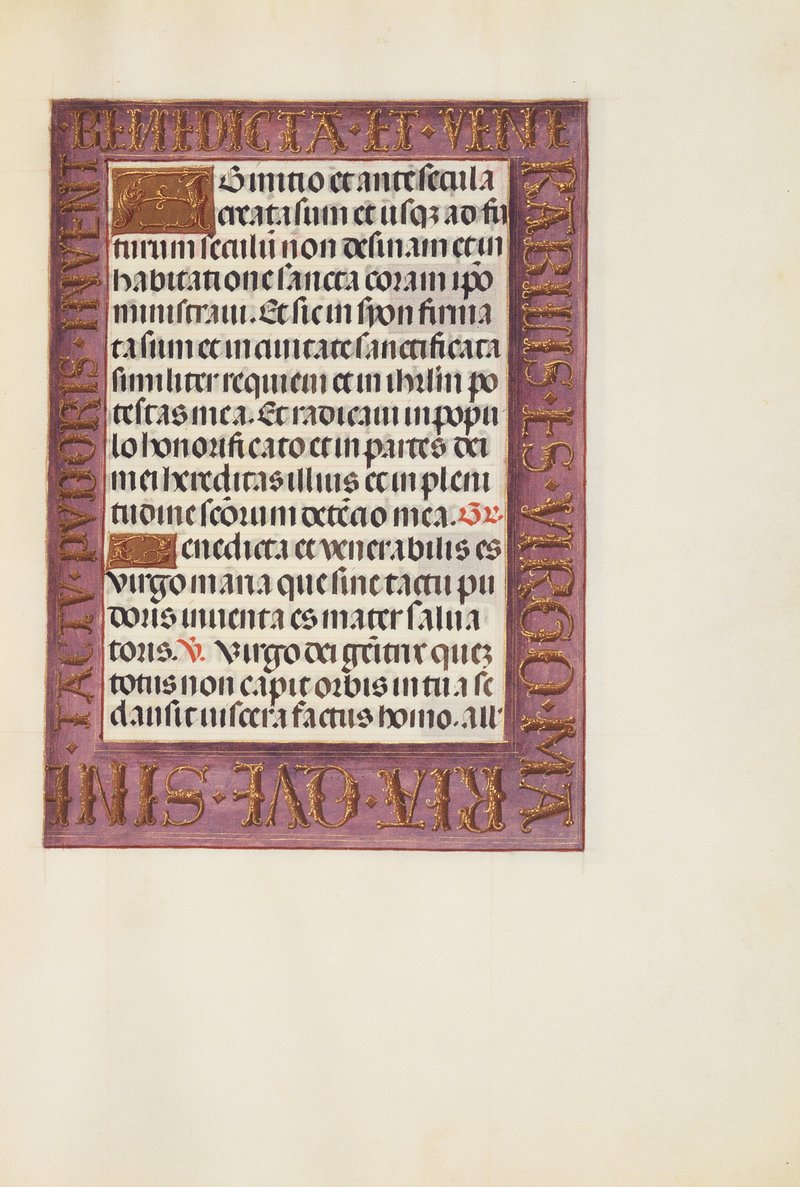 BENEDICTA · ET · VENE
RABILIS · ES · VIRGO · MA
RIA · QVE · SINE
TACTV · PVDORIS · INVENT
AB initio et ante secula
creata sum et usqꝫ ad fu
turum seculū non desinam et in
habitatione sancta coram ip̄o
ministraui. Et sic in syon firma
ta sum et in ciuitate sanctificata
similiter requieui et in ihrl̄m po
testas mea. Et radicaui in popu
lo honorificato et in partes dei
mei hereditas illius et in pleni
tudine sc̄orum detēcio mea. Gr.
Benedicta et venerabilis es
virgo maria que sine tactu pu
doris inuenta es mater salua
toris. V. Virgo dei gēitrix queꝫ
totus non capit orbis in tua se
clausit uiscera factus homo. all'